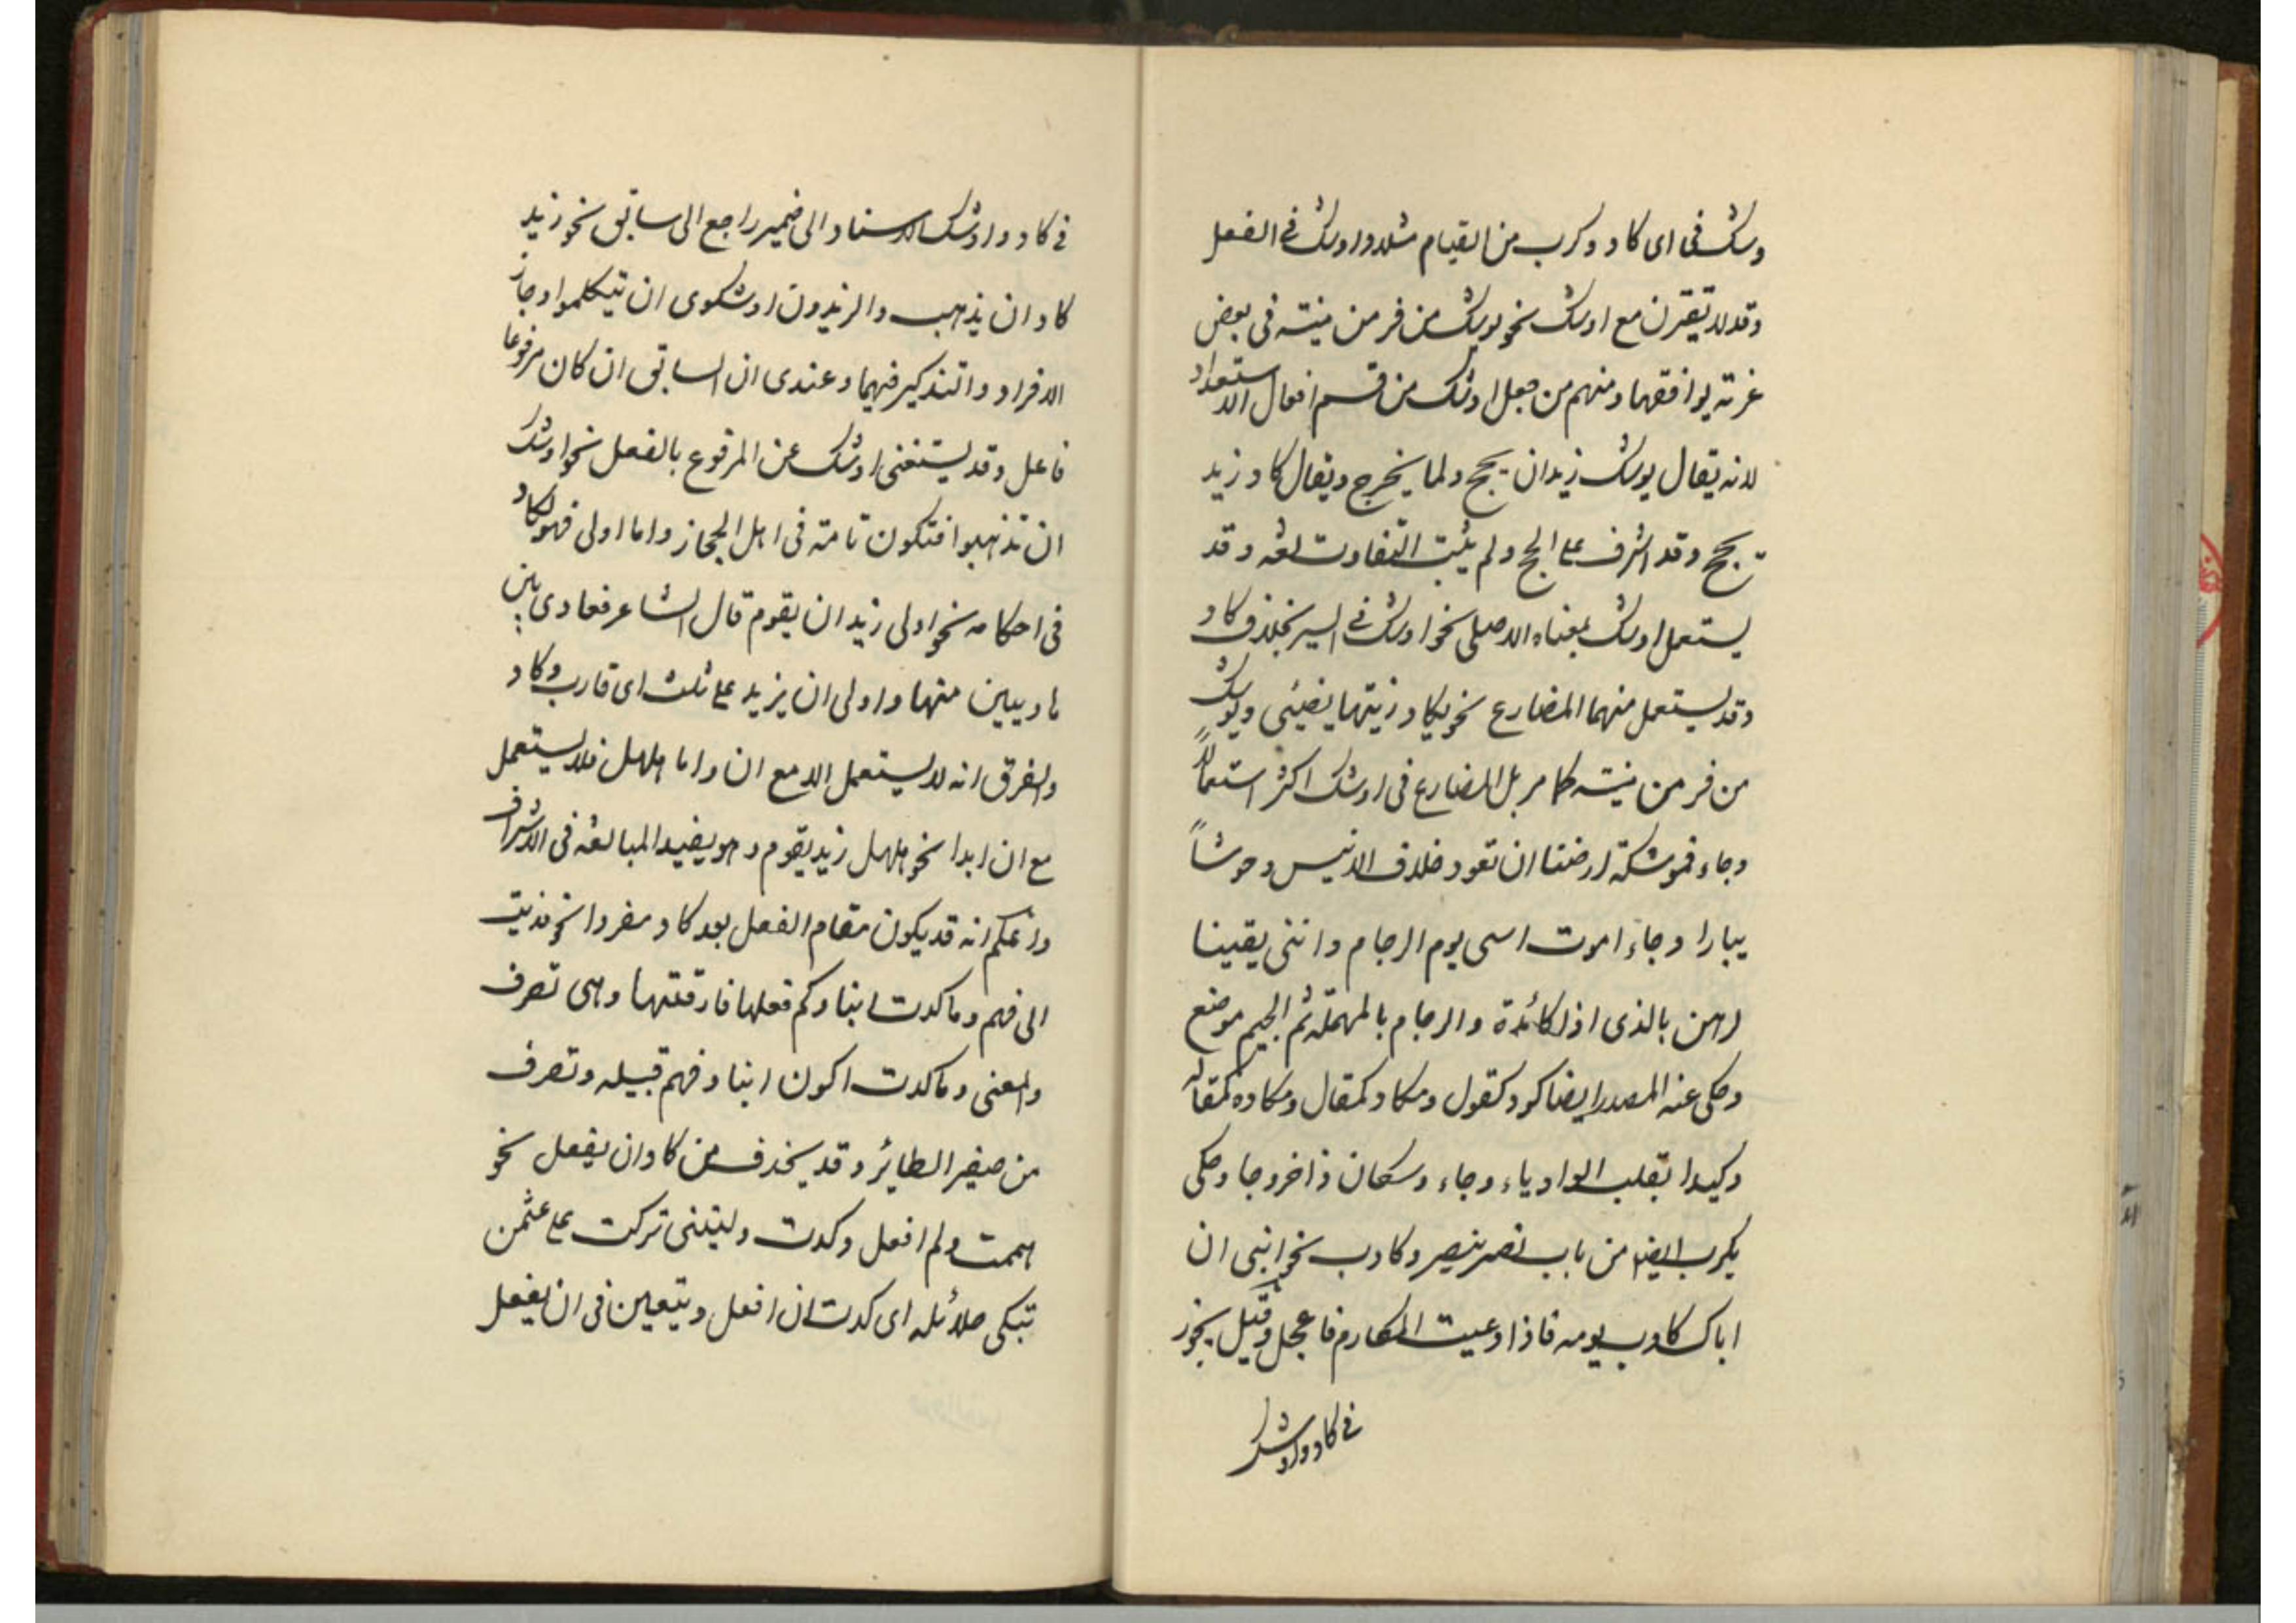 وشك فى اى كاد وكرب من القيام مثلا واوشك فى الفعل
وقد لا يقترن مع اوشك نحو يوشك من فر من منيته فى بعض
غرته يوافقها ومنهم من جعل اوشك من قسم افعال الاستعداد
لانه يقال يوشك زيد ان يحج ولما يخرج ويقال كاد زيد
يحج وقد اشرف على الحج ولم يثبت التفاوت لغة وقد
يستعمل اوشك بمعناه الاصلى نحو اوشك فى السير بخلاف كاد
وقد يستعمل منهما المضارع نحو يكاد زيتها يضيئ ويوشك
من فر من منيته كما مر بل المضارع فى اوشك اكثر استعمالاً
وجاء فموشكة ارضنا ان تعود خلاف الانيس وحوشاً
يبابا وجاء اموت اسى يوم الرجام واننى يقينا
لرهن بالذى اذا كائدة والرجام بالمهملة ثم الجيم موضع
وحكى عنه المصدر ايضا كود كقول ومكاد كمقال ومكادة كمقالة
وكيدا بقلب الواو ياء وجاء وشكان ذا خروجا وحكى
يكرب ايضا من باب نصر ينصر وكارب نحو ابنى ان
اباك كارب يومه فاذا دعيت المكارم فاعجل وقيل يجوز
فى كاد واوشك
فى كاد واوشك الاسناد الى ضمير راجع الى سابق نحو زيد
كاد ان يذهب والزيدون اوشكوى ان يتكلموا وجاز
الافراد والتذكير فيهما وعندى ان السابق ان كان مرفوعا
فاعل وقد يستغنى اوشك عن المرفوع بالفعل نحو اوشك
ان تذهبوا فتكون تامة فى اهل الحجاز واما اولى فهو كاد
فى احكامه نحو اولى زيد ان يقوم قال الشاعر فعادى بين
هاديين منها واولى ان يزيد على ثلث اى قارب وكاد
والفرق انه لا يستعمل الا مع ان واما هلهل فلا يستعمل
مع ان ابدا نحو هلهل زيد يقوم وهو يفيد المبالغة فى الاشراف
واعلم انه قد يكون مقام الفعل بعد كاد مفردا نحو فابت
الى فهم وما كدت ايبا وكم فعلها فارقتها وهى تصرف
والمعنى وما كدت اكون ايبا وفهم قبيلة وتصرف
من صفير الطائر وقد يحذف من كاد ان يفعل نحو
هممت ولم افعل وكدت وليتنى تركت على عثمن
تبكى حلائله اى كدت ان افعل ويتعين فى ان يفعل